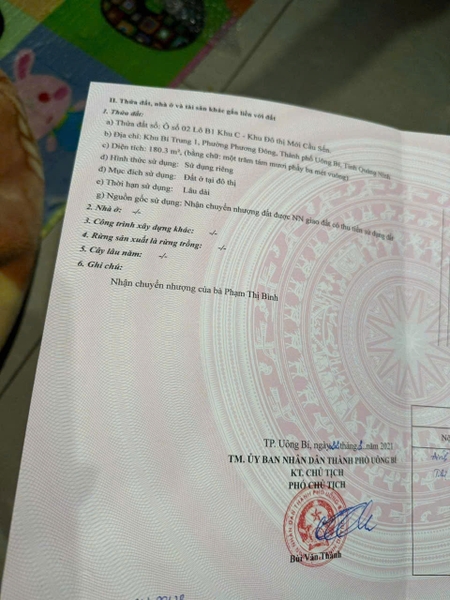 II. Thửa đất, nhà ở và tài sản khác gắn liền với đất
1. Thửa đất:
a) Thửa đất số: Ô số 02 Lô B1 Khu C - Khu Đô thị Mới Cầu Sến
b) Địa chỉ: Khu Bí Trung 1, Phường Phương Đông, Thành phố Uông Bí, Tỉnh Quảng Ninh
c) Diện tích: 180.3 m², (bằng chữ: một trăm tám mươi phẩy ba mét vuông)
d) Hình thức sử dụng: Sử dụng riêng
đ) Mục đích sử dụng: Đất ở tại đô thị
e) Thời hạn sử dụng: Lâu dài
g) Nguồn gốc sử dụng: Nhận chuyển nhượng đất được NN giao đất có thu tiền sử dụng đất
2. Nhà ở: -/-
3. Công trình xây dựng khác: -/-
4. Rừng sản xuất là rừng trồng: -/-
5. Cây lâu năm: -/-
6. Ghi chú:
Nhận chuyển nhượng của bà Phạm Thị Bình
TP. Uông Bí, ngày tháng năm 2021
TM. ỦY BAN NHÂN DÂN THÀNH PHỐ UÔNG BÍ
KT. CHỦ TỊCH
PHÓ CHỦ TỊCH
Bùi Văn Thành